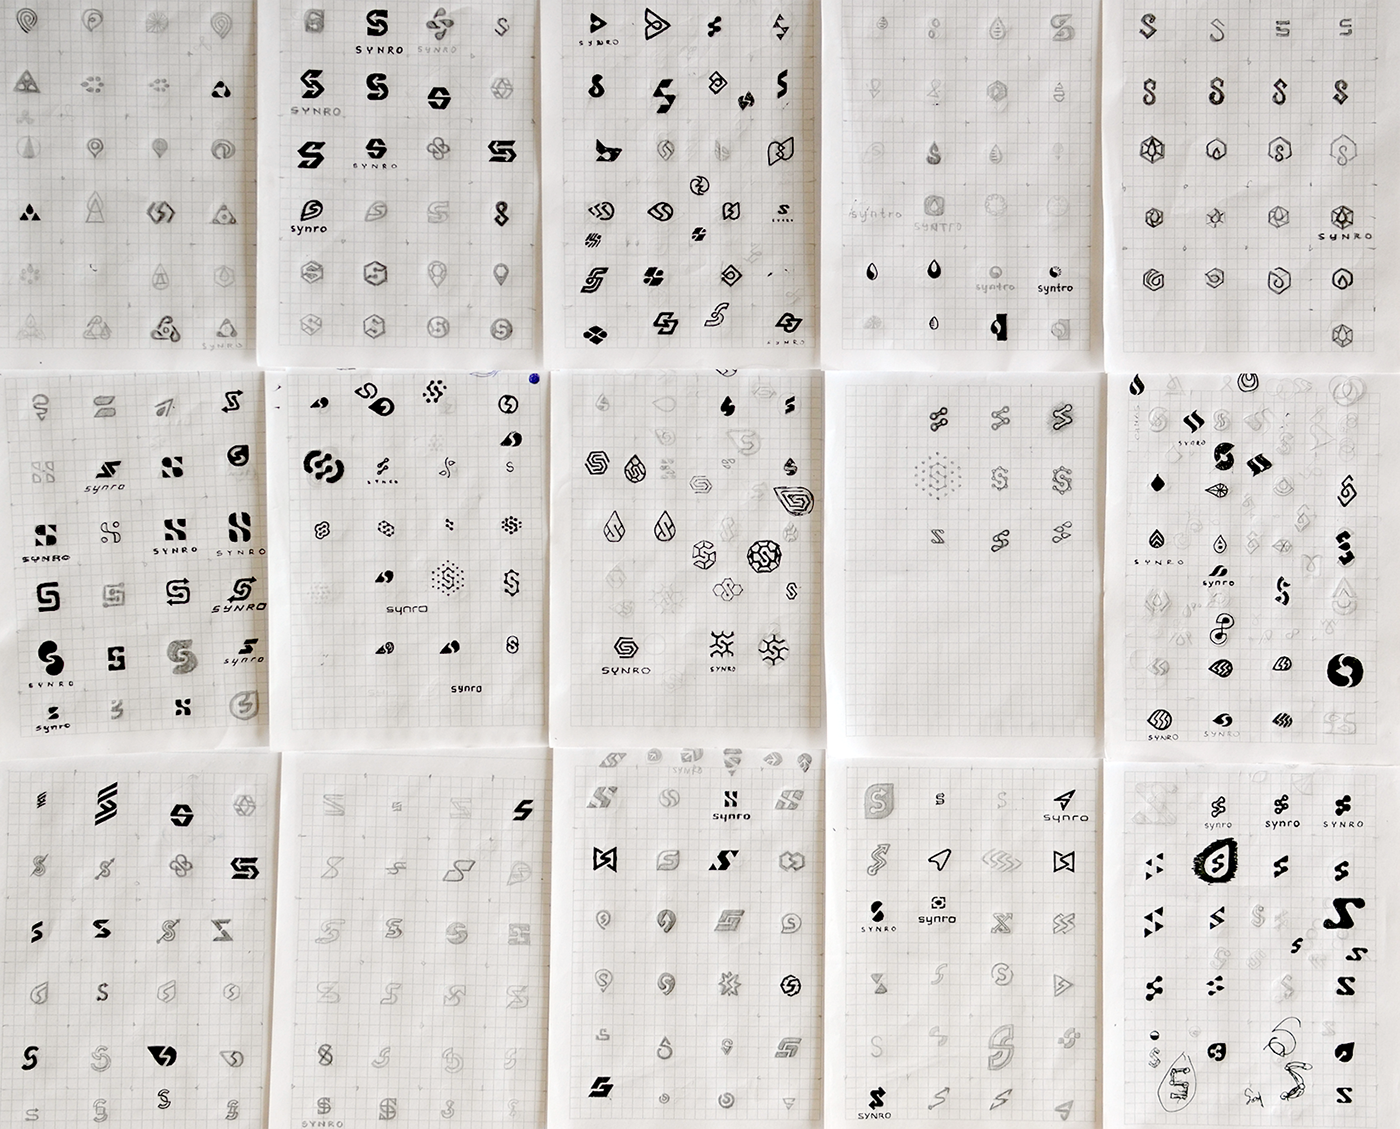 SYNRO
SYNRO
SYNRO
SYNRO
SYNRO
synro
syntro
SYNTRO
syntro
syntro
SYNRO
SYNRO
synro
SYNRO
SYNRO
SYNRO
SYNRO
SYNRO
synro
synro
synro
synro
SYNRO
SYNRO
SYNRO
SYNRO
synro
SYNRO
SYNRO
synro
synro
synro
synro
SYNRO
SYNRO
synro
SYNRO
SYNRO